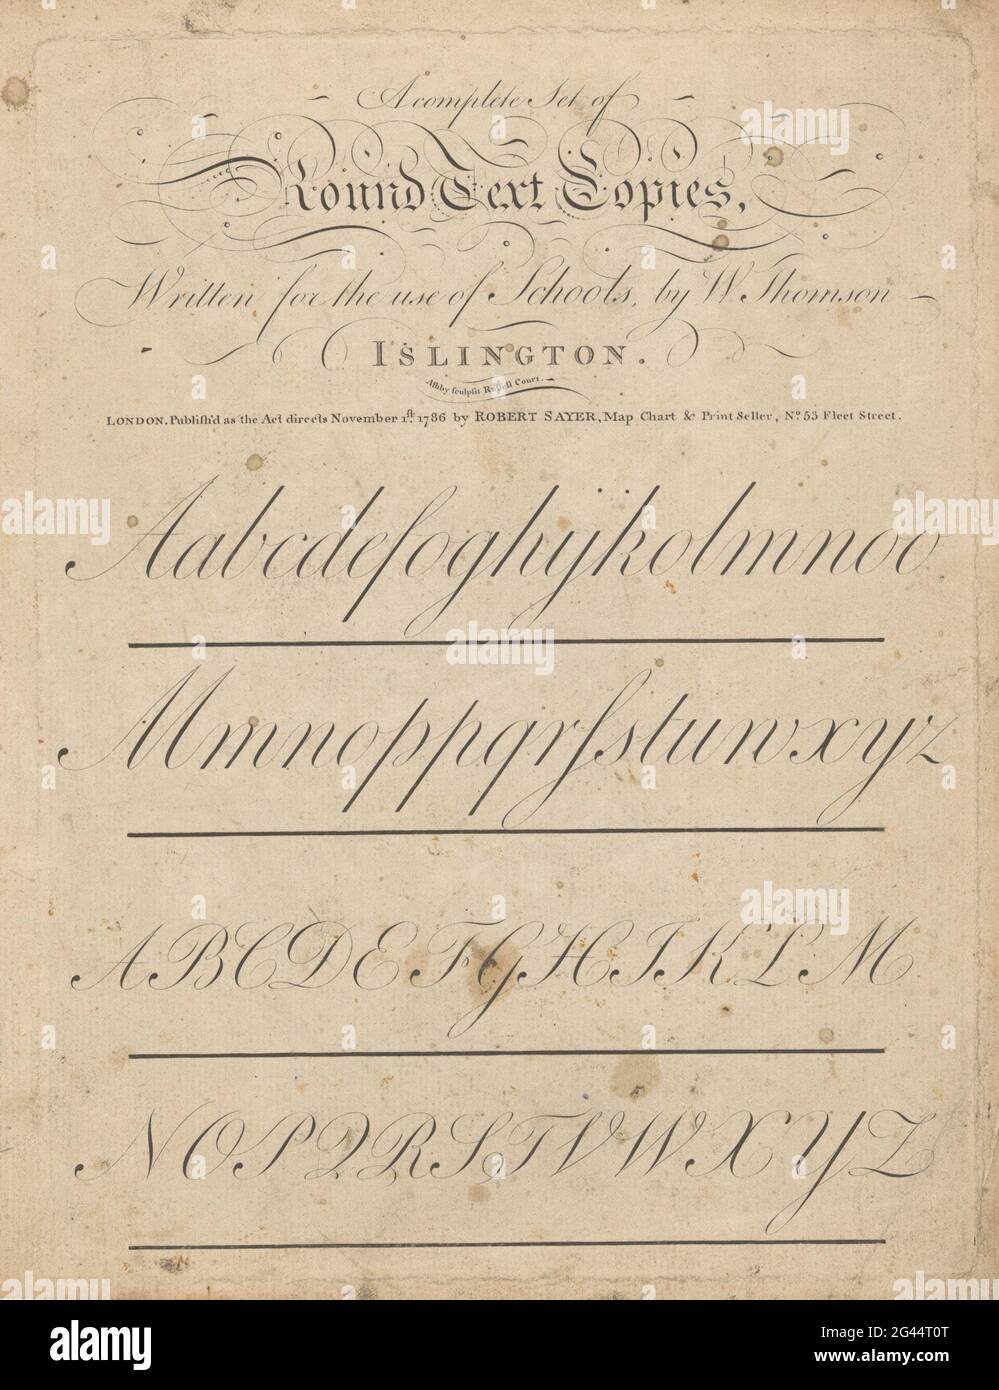 A complete Set of
Round Text Copies,
Written for the use of Schools, by W Thomson
ISLINGTON.
Ashby sculpsit Russell Court.
LONDON. Publish'd as the Act directs November 1st. 1786 by ROBERT SAYER, Map Chart & Print Seller, No. 53 Fleet Street.
Aabcdefoghijkolmnoo
Mmnoppqrſstuwxyz
ABCDEFGHIKLM
NOPQRSTVWXYZ
alamy
Image ID: 2G44T0T
www.alamy.com